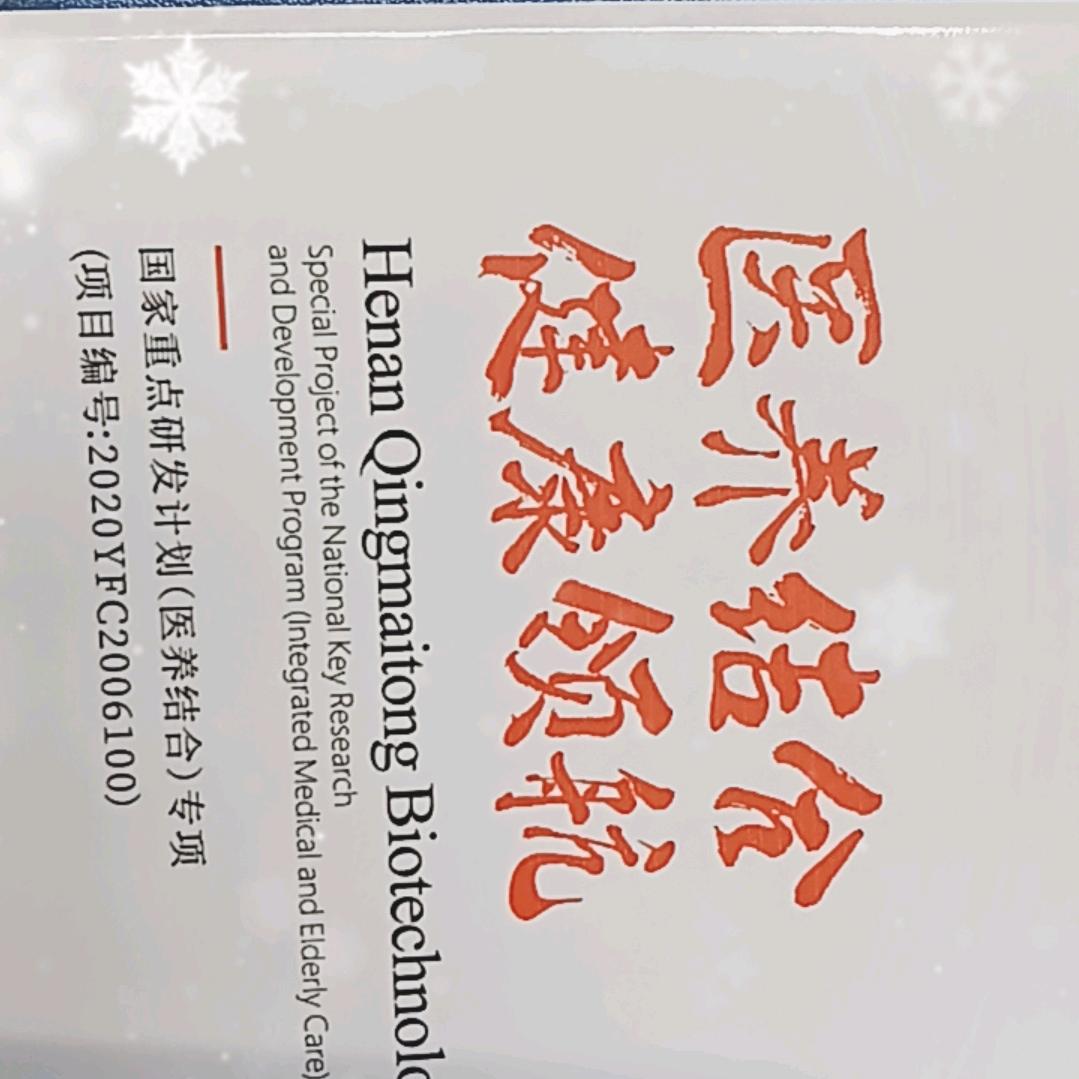 医养结合
健康领航
Henan Qingmaitong Biotechnolo
Special Project of the National Key Research
and Development Program (Integrated Medical and Elderly Care)
国家重点研发计划(医养结合)专项
(项目编号:2020YFC2006100)